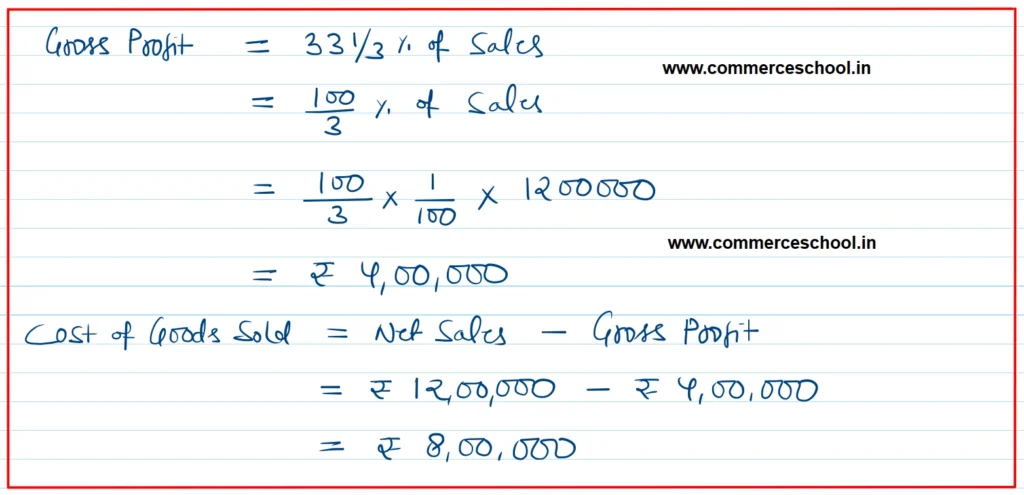 Gross Profit = 33 1/3 % of Sales
www.commerceschool.in
= 100/3 % of Sales
= 100/3 × 1/100 × 1200000
www.commerceschool.in
= ₹ 4,00,000
Cost of Goods Sold = Net Sales − Gross Profit
= ₹ 12,00,000 − ₹ 4,00,000
= ₹ 8,00,000